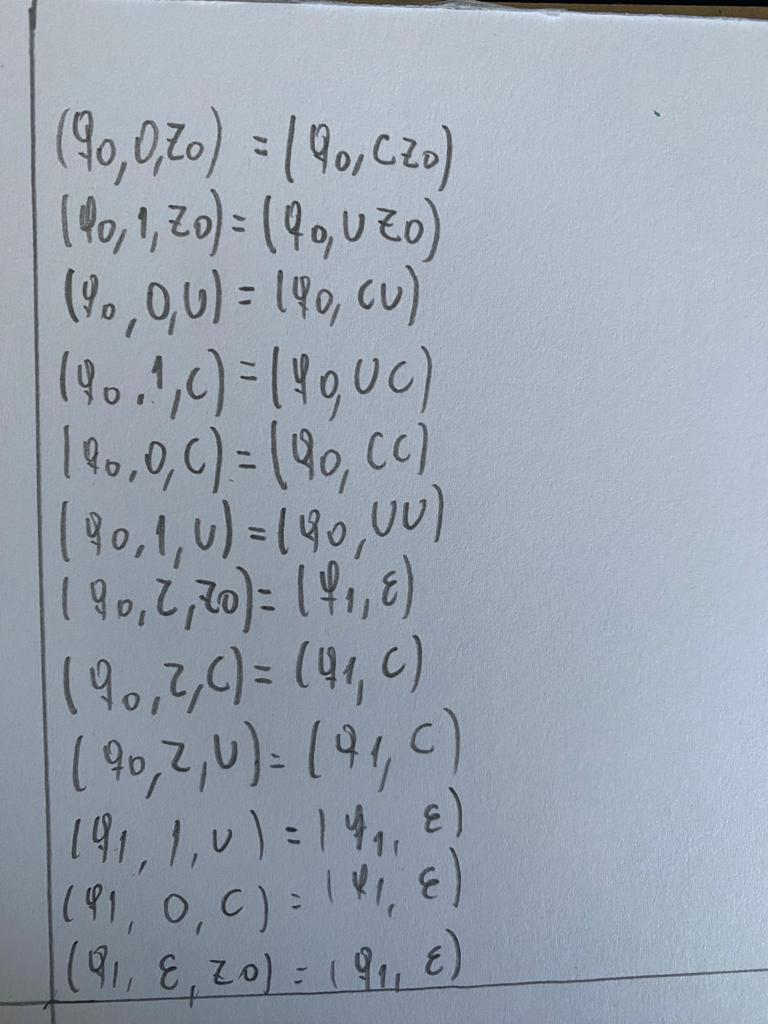 (q0,0,Z0) = (q0, CZ0)
(q0,1,Z0) = (q0, UZ0)
(q0,0,U) = (q0, CU)
(q0.1,C) = (q0,UC)
(q0,0,C) = (q0, CC)
(q0,1,U) = (q0,UU)
(q0,2,Z0) = (q1,ε)
(q0,2,C) = (q1, C)
(q0,2,U) = (q1, C)
(q1,1,U) = (q1, ε)
(q1, 0, C) = (q1, ε)
(q1, ε,Z0) = (q1, ε)